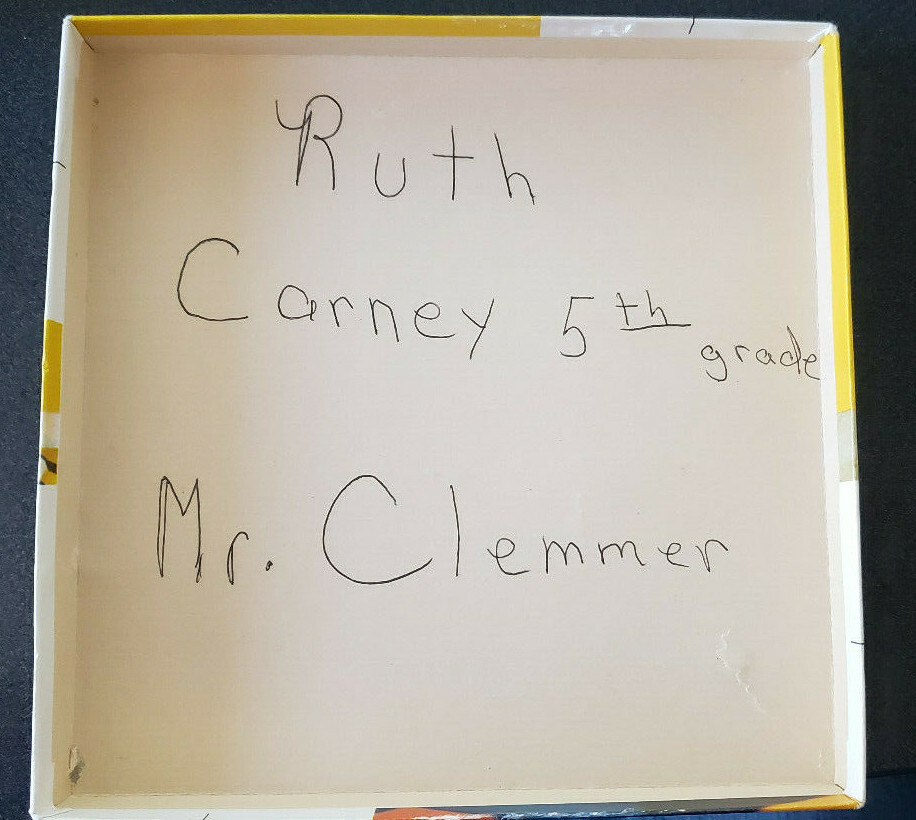 Ruth
Carney 5th grade
Mr. Clemmer